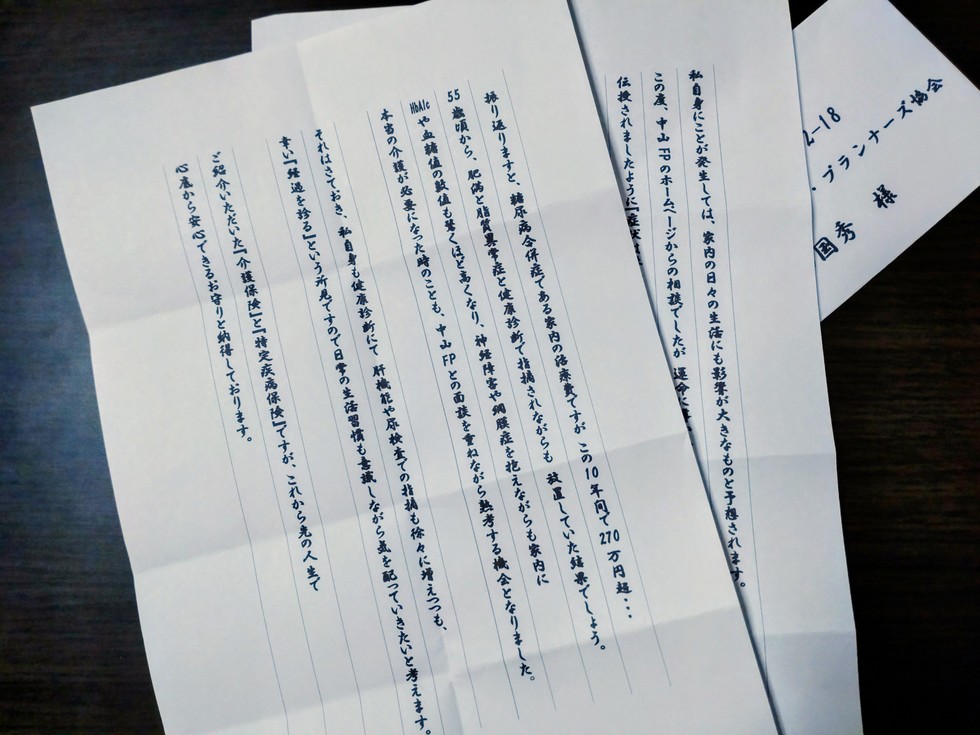 2-18
・プランナーズ協会
国秀 様
私自身にことが発生しては、家内の日々の生活にも影響が大きなものと予想されます。
この度、中山FPのホームページからの相談でしたが 運命
伝授されましたように『
振り返りますと、糖尿病合併症である家内の治療費ですが この10年間で270万円超・・・
55歳頃から、肥満と脂質異常症と健康診断で指摘されながらも 放置していた結果でしょう。
HbA1cや血糖値の数値も驚くほど高くなり、神経障害や網膜症を抱えながらも家内に
本当の介護が必要になった時のことも、中山FPとの面談を重ねながら熟考する機会となりました。
それはさておき、私自身も健康診断にて 肝機能や尿検査での指摘も徐々に増えつつも、
幸い『経過を診る』という所見ですので日常の生活習慣も意識しながら気を配っていきたいと考えます。
ご紹介いただいた『介護保険』と『特定疾病保険』ですが、これから先の人生で
心底から安心できるお守りと納得しております。